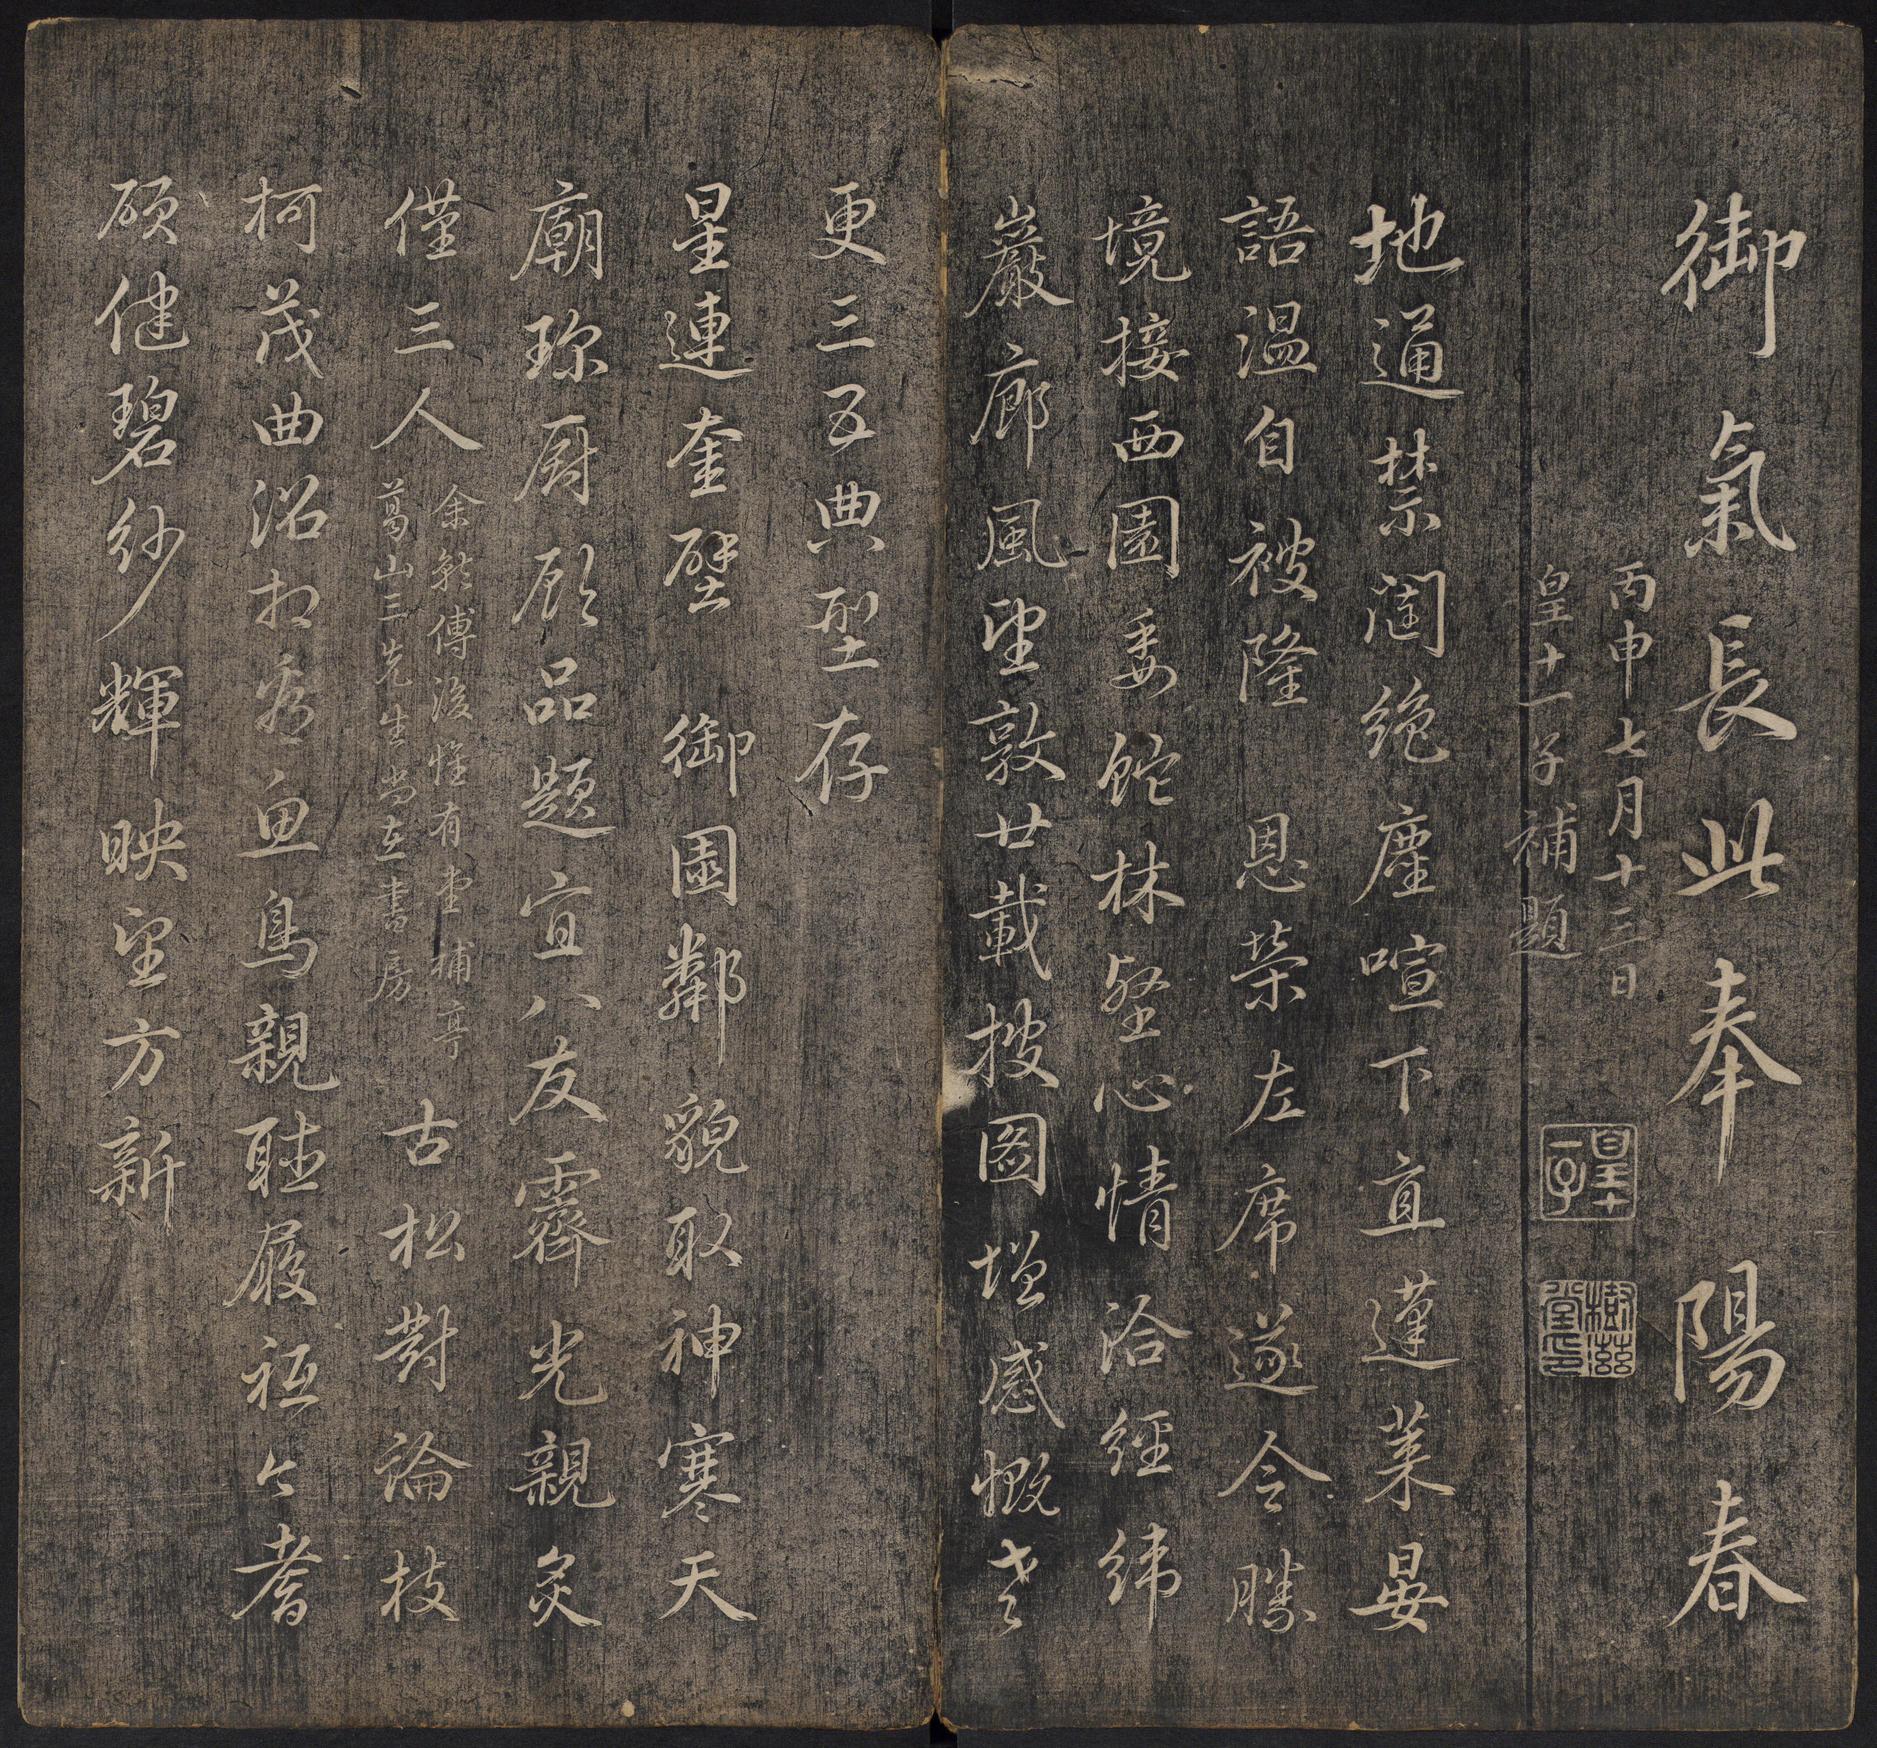 御氣長此奉陽春
丙申七月十三日
皇十一子補題
皇十一子
樹滋堂印
地通禁闥絶塵喧下直蓬萊晏
語溫自被隆 恩榮左席遂令勝
境接西園委蛇林壑心情洽經緯
巖廊風望敦廿載披圖增感慨老
更三五典型存
星連奎壁 御園鄰貌取神寒天
廟珍厨顧品題宜八友霽光親炙
僅三人
余
傅後惟有堂補亭
葛山三先生尚在書房
古松對論枝
柯茂曲沼相看魚鳥親聽履祗今耆
碩健碧紗輝映望方新